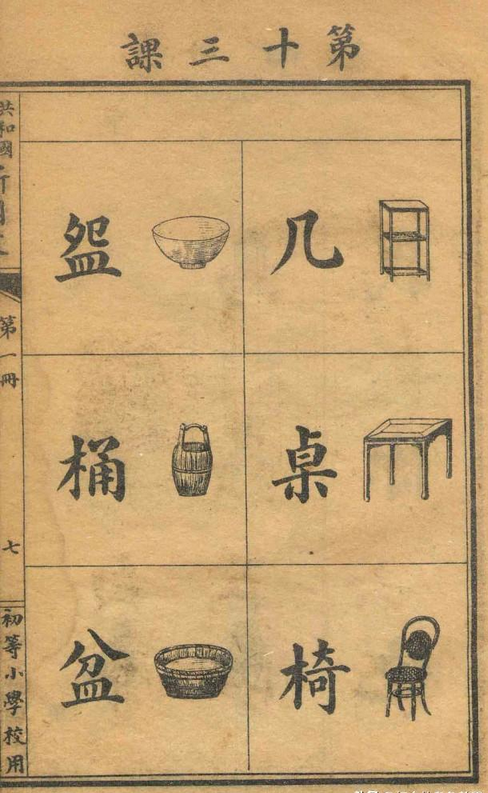 第十三課
几
桌
椅
盌
桶
盆
共和國
第一冊
七
初等小學校用